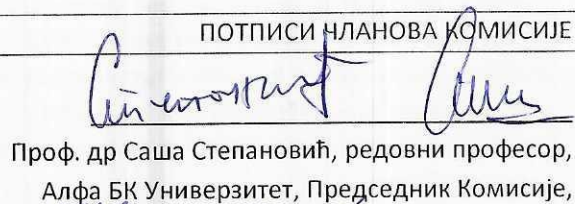 ПОТПИСИ ЧЛАНОВА КОМИСИЈЕ
Проф. др Саша Степановић, редовни професор,
Алфа БК Универзитет, Председник Комисије,